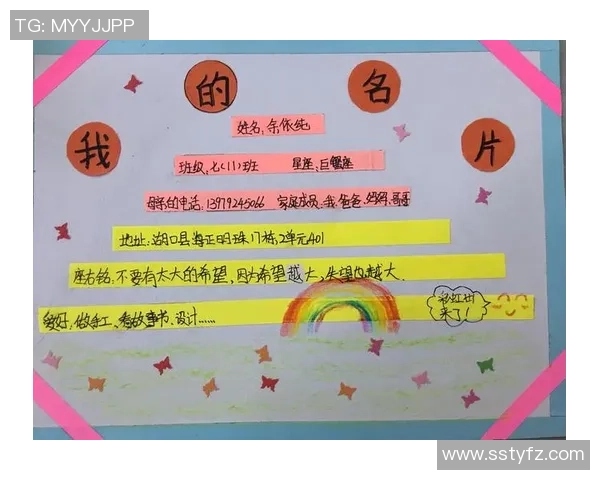 TG: MYYJJPP
我的名片
姓名：余依纯
班级：七(11)班 星座：巨蟹座
母亲的电话：13979245066 家庭成员：我、爸爸、妈妈、哥哥
地址：湖口县海正明珠17栋2单元401
座右铭：不要有太大的希望，因为希望越大，失望也越大
爱好：做手工、看故事书、设计......
彩虹出
来了！
www.sstyfz.com